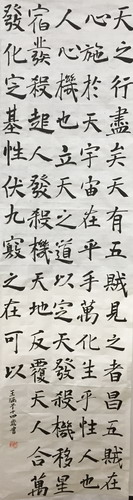 天之行盡矣天有五賊見之者昌五賊在
心施於天宇宙在乎手萬化生乎性人也
人心機也立天之道以定天發殺機移星
宿發殺起人發殺機天地反覆天人合萬
發化定基性伏九竅之在可以